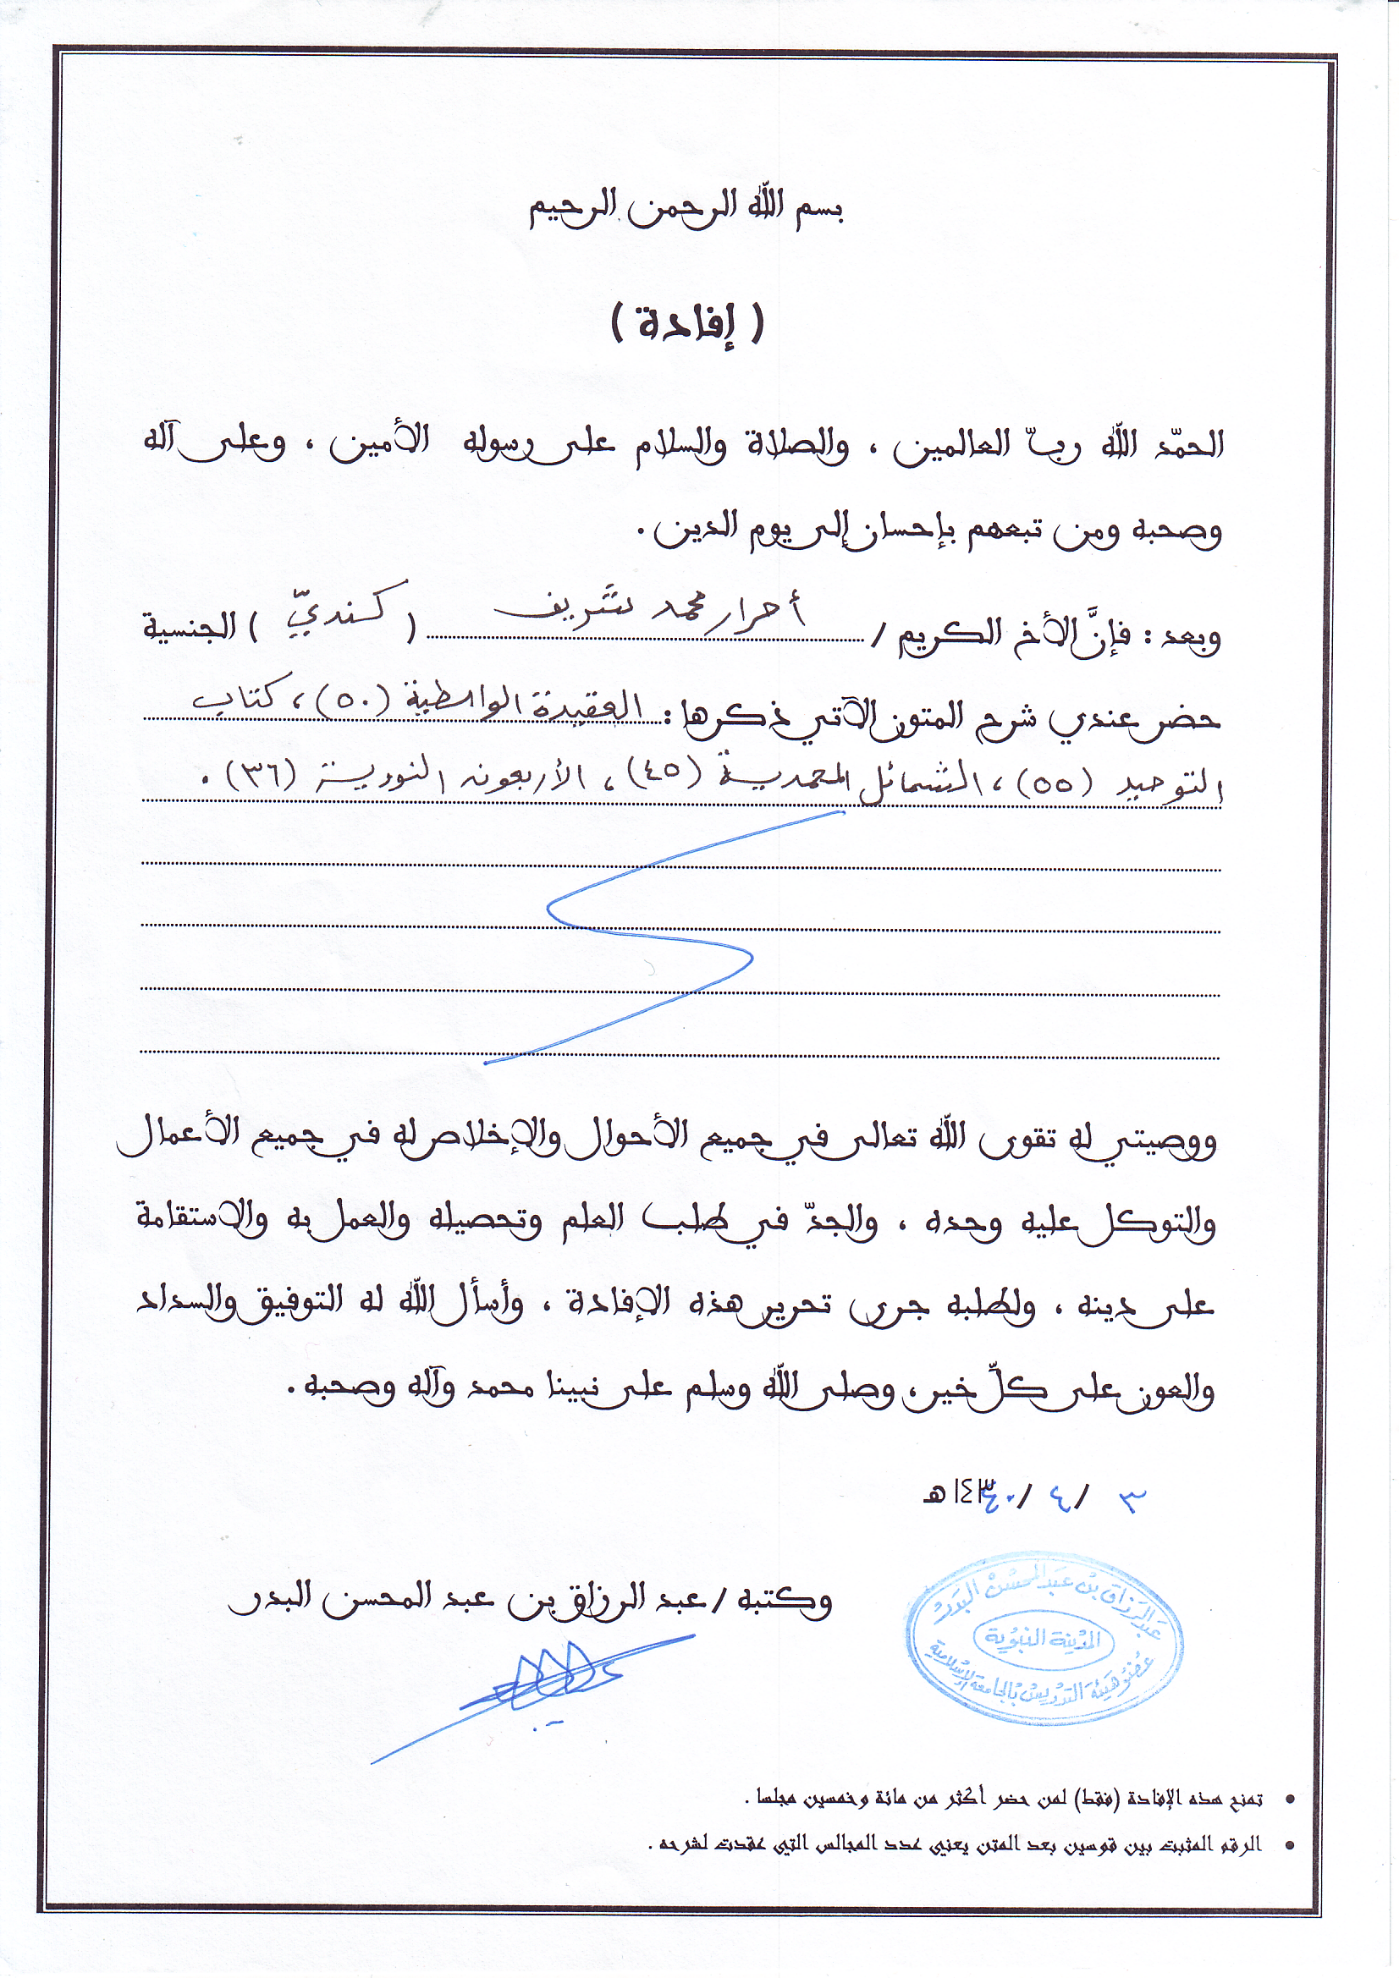 بسم الله الرحمن الرحيم
( إفادة )
الحمّد الله ربّ العالمين ، والصلاة والسلام على رسوله الأمين ، وعلى آله
وصحبه ومن تبعهم بإحسان إلى يوم الدين .
وبعد : فإنَّ الأخ الكريم / أحرار محمد شريف ( كنديّ ) الجنسية
حضر عندي شرح المتون الآتي ذكرها : العقيدة الواسطية (٥٠) ، كتاب
التوحيد (٥٥) ، الشمائل المحمدية (٤٥) ، الأربعون النووية (٣٦) .
ووصيتي له تقوى الله تعالى في جميع الأحوال والإخلاص له في جميع الأعمال
والتوكل عليه وحده ، والجدّ في طلب العلم وتحصيله والعمل به والاستقامة
على دينه ، ولطلبه جرى تحرير هذه الإفادة ، وأسأل الله له التوفيق والسداد
والعون على كلّ خير، وصلى الله وسلم على نبينا محمد وآله وصحبه .
٣ / ٤ / ١٤٤٠هـ
وكتبه / عبد الرزاق بن عبد المحسن البدر
عبد الرزاق بن عبد المحسن البدر
المدينة النبوية
عضو هيئة التدريس بالجامعة الإسلامية
• تمنح هذه الإفادة (فقط) لمن حضر أكثر من مائة وخمسين مجلسا .
• الرقم المثبت بين قوسين بعد المتن يعني عدد المجالس التي عقدت لشرحه .